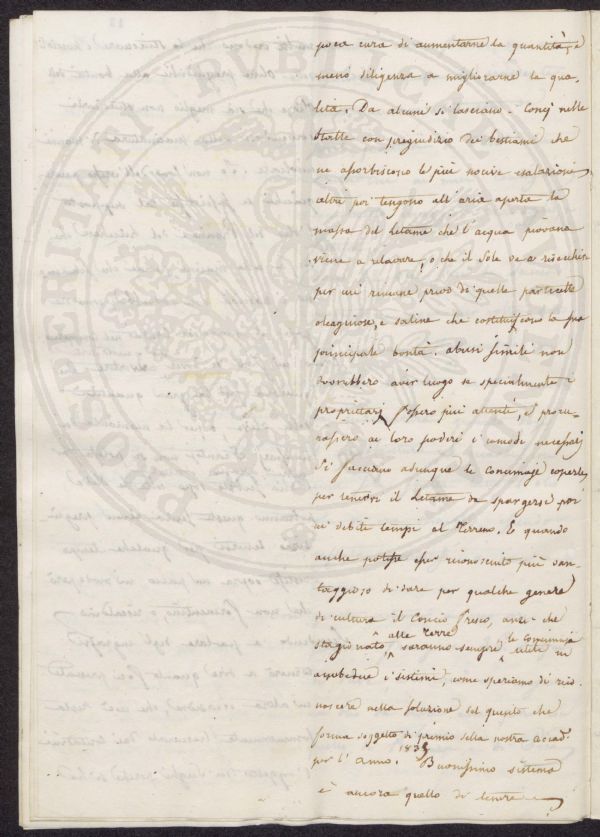 poca cura di aumentarne la quantità, e
meno diligenza a migliorarne la qua-
lità. Da alcuni si lasciano i Concj nelle
Stalle con pregiudizio dei bestiami che
ne assorbiscono le più nocive esalazioni
altri poi tengono all'aria aperta la
massa del Letame che l'acqua piovana
viene a relavare, o che il Sole va a risecchir
per cui rimane privo di quelle particelle
oleaginose, e saline che costituiscono la sua
principale bontà. abusi simili non
dovrebbero aver luogo se specialmente i
proprietarj fossero più attenti, e procu-
rassero ai loro poderi i comodi necessarj
Si facciano adunque le concimaje coperte
per tenervi il Letame da spargersi poi
ai debiti tempi al Terreno. E quando
anche potesse esser riconosciuto più van-
taggioso di dare per qualche genere
di cultura il Concio fresco, anzi che
stagionato alle Terre saranno sempre utili le concimaje in
ambedue i sistemi, come speriamo di rico-
noscere nella soluzione del quesito che
forma soggetto di premio della nostra accad.
per l'anno 1839. Buonissimo sistema
è ancora quello di tenere
PROSPERITATI PVBLICAE